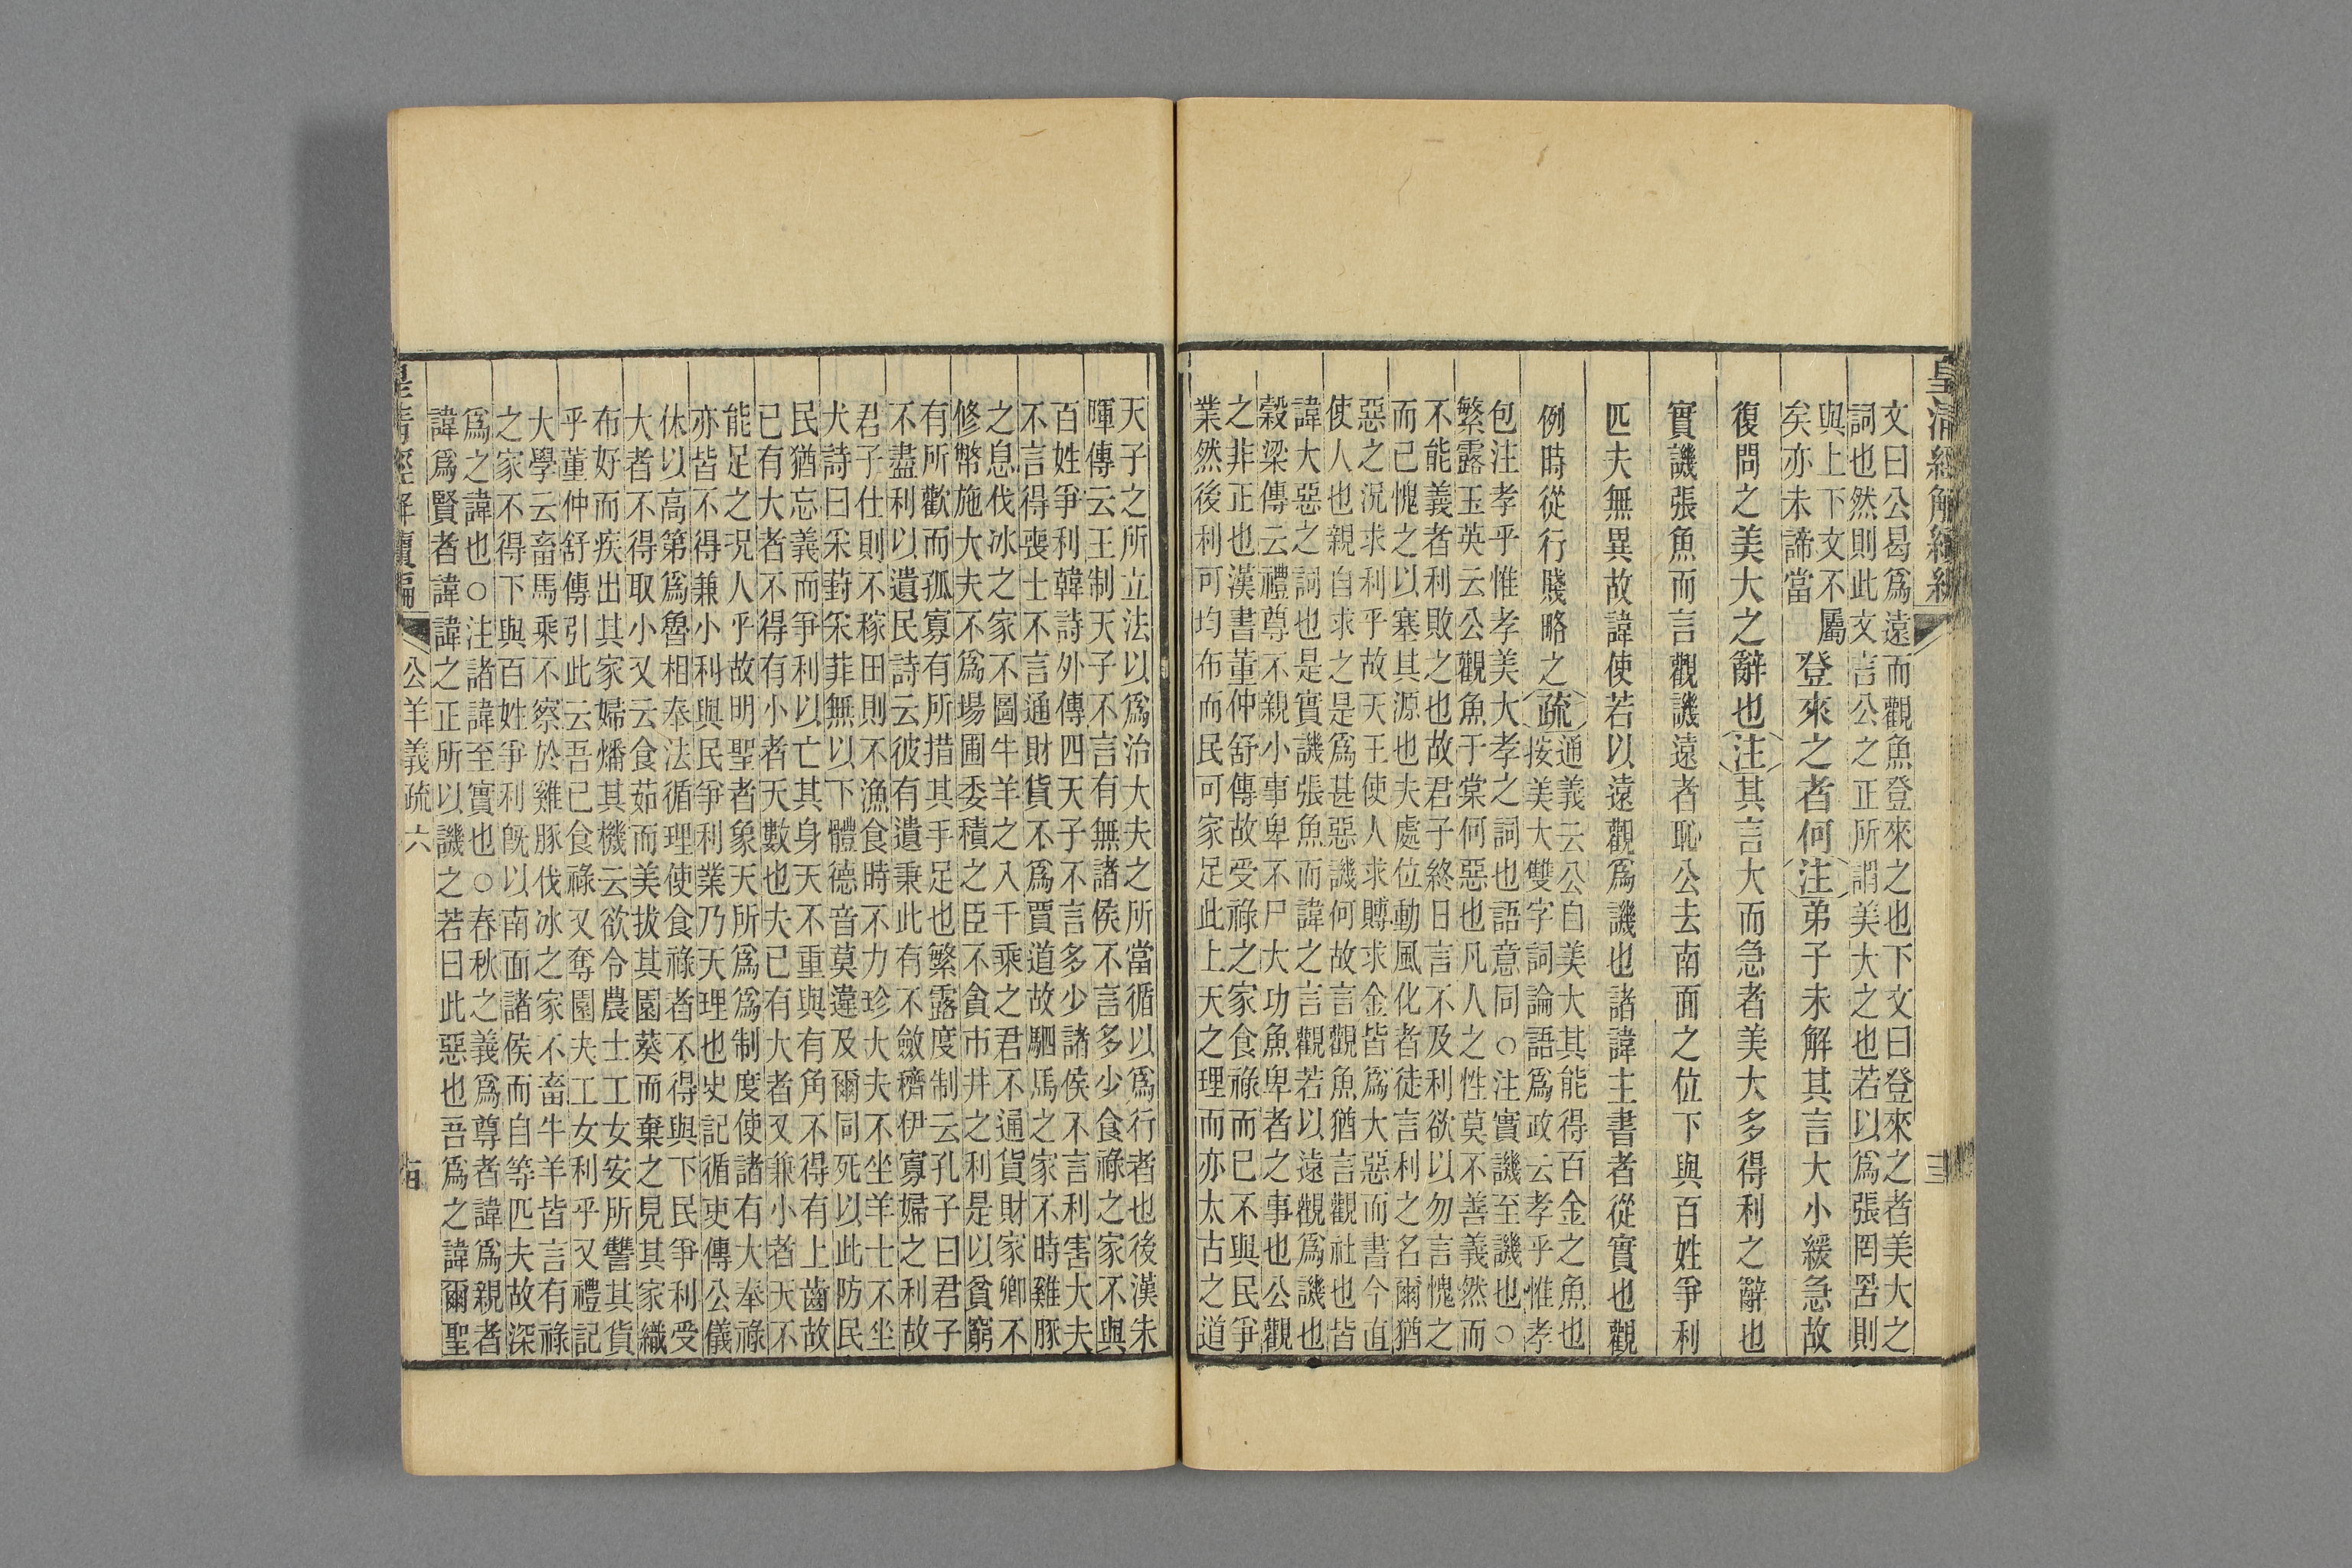 皇清經解續編
三
文曰公曷爲遠而觀魚登來之也下文曰登來之者美大之
詞也然則此文言公之正所謂美大之也若以爲張罔罟則
與上下文不屬
矣亦未諦當
登來之者何注弟子未解其言大小緩急故
復問之美大之辭也注其言大而急者美大多得利之辭也
實譏張魚而言觀譏遠者恥公去南面之位下與百姓爭利
匹夫無異故諱使若以遠觀爲譏也諸諱主書者從實也觀
例時從行賤略之疏
通義云公自美大其能得百金之魚也
按美大雙字詞論語爲政云孝乎惟孝
包注孝乎惟孝美大孝之詞也語意同○注實譏至譏也○
繁露玉英云公觀魚于棠何惡也凡人之性莫不善義然而
不能義者利敗之也故君子終日言不及利欲以勿言愧之
而已愧之以塞其源也夫處位動風化者徒言利之名爾猶
惡之況求利乎故天王使人求賻求金皆爲大惡而書今直
使人也親自求之是爲甚惡譏何故言觀魚猶言觀社也皆
諱大惡之詞也是實譏張魚而諱之言觀若以遠觀爲譏也
穀梁傳云禮尊不親小事卑不尸大功魚卑者之事也公觀
之非正也漢書董仲舒傳故受祿之家食祿而已不與民爭
業然後利可均布而民可家足此上天之理而亦太古之道
天子之所立法以爲治大夫之所當循以爲行者也後漢朱
暉傳云王制天子不言有無諸侯不言多少食祿之家不與
百姓爭利韓詩外傳四天子不言多少諸侯不言利害大夫
不言得喪士不言通財貨不爲賈道故駟馬之家不時雞豚
之息伐冰之家不圖牛羊之入千乘之君不通貨財家卿不
修幣施大夫不爲場圃委積之臣不貪市井之利是以貧窮
有所歡而孤寡有所措其手足也繁露度制云孔子曰君子
不盡利以遺民詩云彼有遺秉此有不斂穧伊寡婦之利故
君子仕則不稼田則不漁食時不力珍大夫不坐羊士不坐
犬詩曰采葑采菲無以下體德音莫違及爾同死以此防民
民猶忘義而爭利以亡其身天不重與有角不得有上齒故
已有大者不得有小者天數也夫已有大者又兼小者天不
能足之況人乎故明聖者象天所爲爲制度使諸有大奉祿
亦皆不得兼小利與民爭利業乃天理也史記循吏傳公儀
休以高第爲魯相奉法循理使食祿者不得與下民爭利受
大者不得取小又云食茹而美拔其園葵而棄之見其家織
布好而疾出其家婦燔其機云欲令農士工女安所讐其貨
乎董仲舒傳引此云吾已食祿又奪園夫工女利乎又禮記
大學云畜馬乘不察於雞豚伐冰之家不畜牛羊皆言有祿
之家不得下與百姓爭利旣以南面諸侯而自等匹夫故深
爲之諱也○注諸諱至實也○春秋之義爲尊者諱爲親者
諱爲賢者諱諱之正所以譏之若曰此惡也吾爲之諱爾聖
皇清經解續編
公羊義疏六